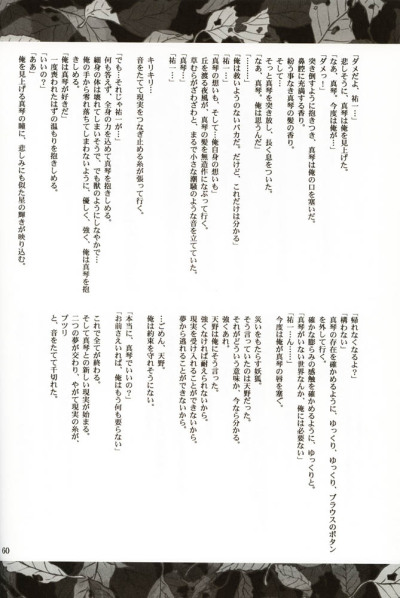 「ダメだよ、祐一…」
悲しそうに、真琴は俺を見上げた。
「なあ、真琴、今度は俺が…」
「ダメっ！」
突き倒すように抱きつき、真琴は俺の口を塞いだ。
鼻腔に充満する香り。
紛う事なき真琴の髪の香り。
そして…
すっと真琴を突き放し、長く息をついた。
「なあ、真琴、俺は思うんだ」
「………」
「俺は救いようのないバカだ。だけど、これだけは分かる」
「祐一…」
「真琴の想いも、そして…俺自身の想いも」
丘を渡る夜風が、真琴の髪を無造作になぶって行く。
草むらがざわざわと、まるで小さな潮騒のような音を立てていた。
「真琴」
「祐一…」
キリキリ…
音をたてて現実をつなぎ止める糸が張って行く。
「でも…それじゃ祐一が…」
何も答えず、全身の力を込めて真琴を抱きしめる。
細身の体は壊れてしまいそうで、でも獣のようにしなやかで…
俺の手から零れ落ちてしまわないように、優しく、強く、俺は真琴を抱
きしめる。
「俺は真琴が好きだ」
一度喪われたはずの温もりを抱きしめる。
「いいの？」
「ああ」
俺を見上げる真琴の瞳に、悲しみにも似た星の輝きが映り込む。
「帰れなくなるよ？」
「構わない」
真琴の存在を確かめるように、ゆっくり、ゆっくり、ブラウスのボタン
を外して行く。
確かな膨らみの感触を確かめるように、ゆっくりと。
「真琴がいない世界なんか、俺には必要ない」
「祐一…ん……」
今度は俺が真琴の唇を塞ぐ。
災いをもたらす妖狐。
そう言っていたのは天野だった。
それがどういう意味か、今なら分かる。
強くあれ。
天野は俺にそう言った。
強くなければ耐えられないから。
現実を受け入れることができないから。
夢から逃れることができないから。
…ごめん、天野。
俺は約束を守れそうにない。
「本当に、真琴でいいの？」
「お前さえいれば、俺はもう何も要らない」
これで全てが終わる。
そして真琴との新しい現実が始まる。
二つの夢が交わり、やがて現実の糸が、
プツリ
と、音をたてて千切れた。
60